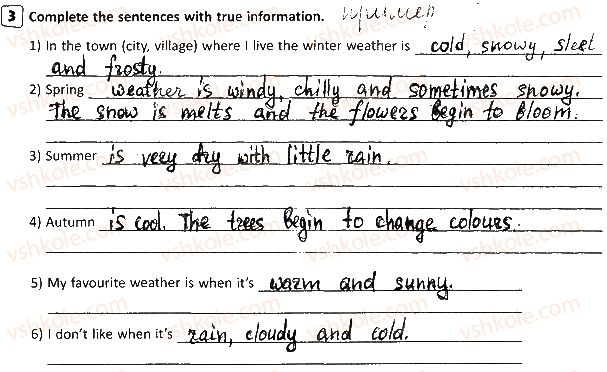 3 Complete the sentences with true information. пример
1) In the town (city, village) where I live the winter weather is cold, snowy, sleet
and frosty.
2) Spring weather is windy, chilly and sometimes snowy.
The snow is melts and the flowers begin to bloom.
3) Summer is very dry with little rain.
4) Autumn is cool. The trees begin to change colours.
5) My favourite weather is when it's warm and sunny.
6) I don't like when it's rain, cloudy and cold.